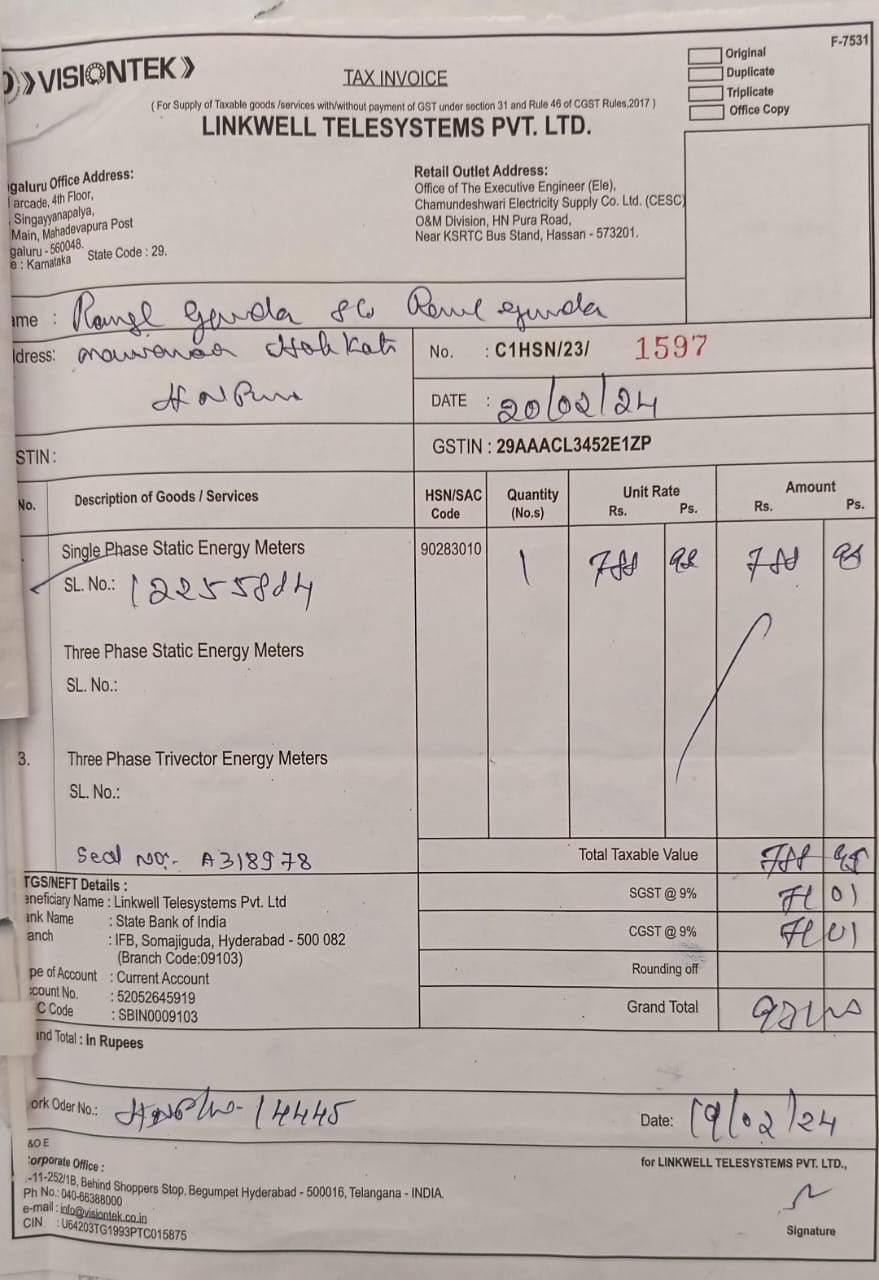 VISIONTEK
TAX INVOICE
F-7531
Original
Duplicate
Triplicate
Office Copy
( For Supply of Taxable goods /services with/without payment of GST under section 31 and Rule 46 of CGST Rules,2017 )
LINKWELL TELESYSTEMS PVT. LTD.
galuru Office Address:
arcade, 4th Floor,
Singayyanapalya,
Main, Mahadevapura Post
galuru - 560048.
e : Karnataka State Code : 29.
Retail Outlet Address:
Office of The Executive Engineer (Ele),
Chamundeshwari Electricity Supply Co. Ltd. (CESC)
O&M Division, HN Pura Road,
Near KSRTC Bus Stand, Hassan - 573201.
ame :
ddress:
H N Pura
No. : C1HSN/23/ 1597
DATE : 20/02/24
STIN :
GSTIN : 29AAACL3452E1ZP
No. Description of Goods / Services HSN/SAC Code Quantity (No.s) Unit Rate Rs. Ps. Amount Rs. Ps.
Single Phase Static Energy Meters 90283010 1 788 98 788 98
SL. No.: 12255884
Three Phase Static Energy Meters
SL. No.:
3. Three Phase Trivector Energy Meters
SL. No.:
Seal No:- A318978
Total Taxable Value 788 98
SGST @ 9% 71 01
CGST @ 9% 71 01
Rounding off
Grand Total
TGS/NEFT Details :
eneficiary Name : Linkwell Telesystems Pvt. Ltd
ank Name : State Bank of India
anch : IFB, Somajiguda, Hyderabad - 500 082
(Branch Code:09103)
pe of Account : Current Account
count No. : 52052645919
C Code : SBIN0009103
and Total : In Rupees
ork Oder No.: 14445
Date: 19/02/24
&O E
orporate Office :
-11-252/1B, Behind Shoppers Stop, Begumpet Hyderabad - 500016, Telangana - INDIA.
Ph No.: 040-66388000
e-mail : info@visiontek.co.in
CIN : U64203TG1993PTC015875
for LINKWELL TELESYSTEMS PVT. LTD.,
Signature